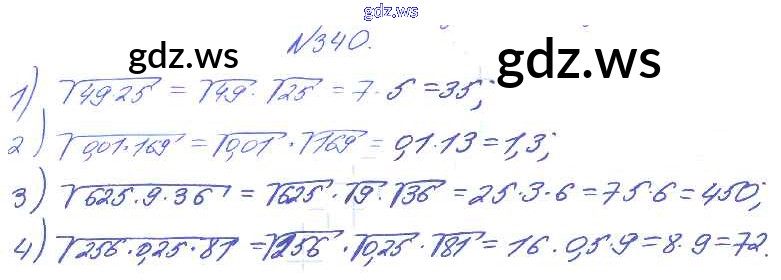 gdz.ws
№340.
gdz.ws gdz.ws
1) √49·25 = √49 · √25 = 7 · 5 = 35;
2) √0,01·169 = √0,01 · √169 = 0,1 · 13 = 1,3;
3) √625·9·36 = √625 · √9 · √36 = 25 · 3 · 6 = 75 · 6 = 450;
4) √256·0,25·81 = √256 · √0,25 · √81 = 16 · 0,5 · 9 = 8 · 9 = 72.